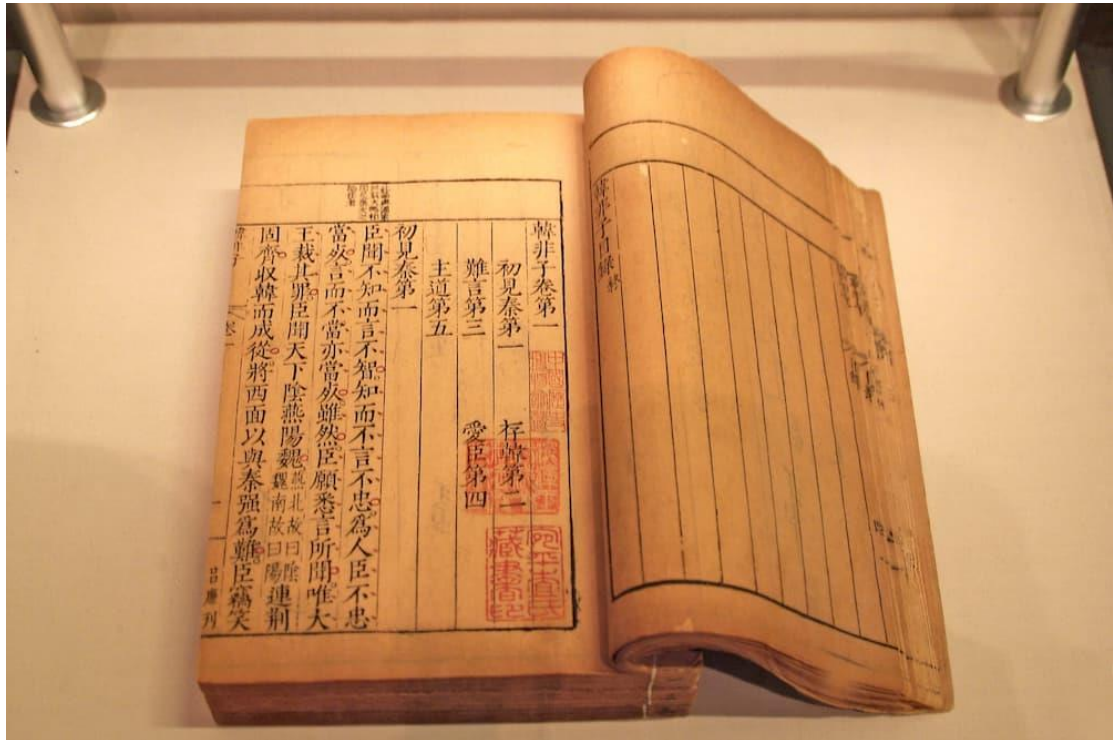 韓非子目録終
韓非子卷第一
初見秦第一 存韓第二
難言第三 愛臣第四
主道第五
初見秦第一
臣聞不知而言不智知而不言不忠爲人臣不忠
當死言而不當亦當死雖然臣願悉言所聞唯大
王裁其罪臣聞天下陰燕陽魏燕北故曰陰魏南故曰陽連荆
固齊收韓而成從將西面以與秦强爲難臣竊笑
藏書印